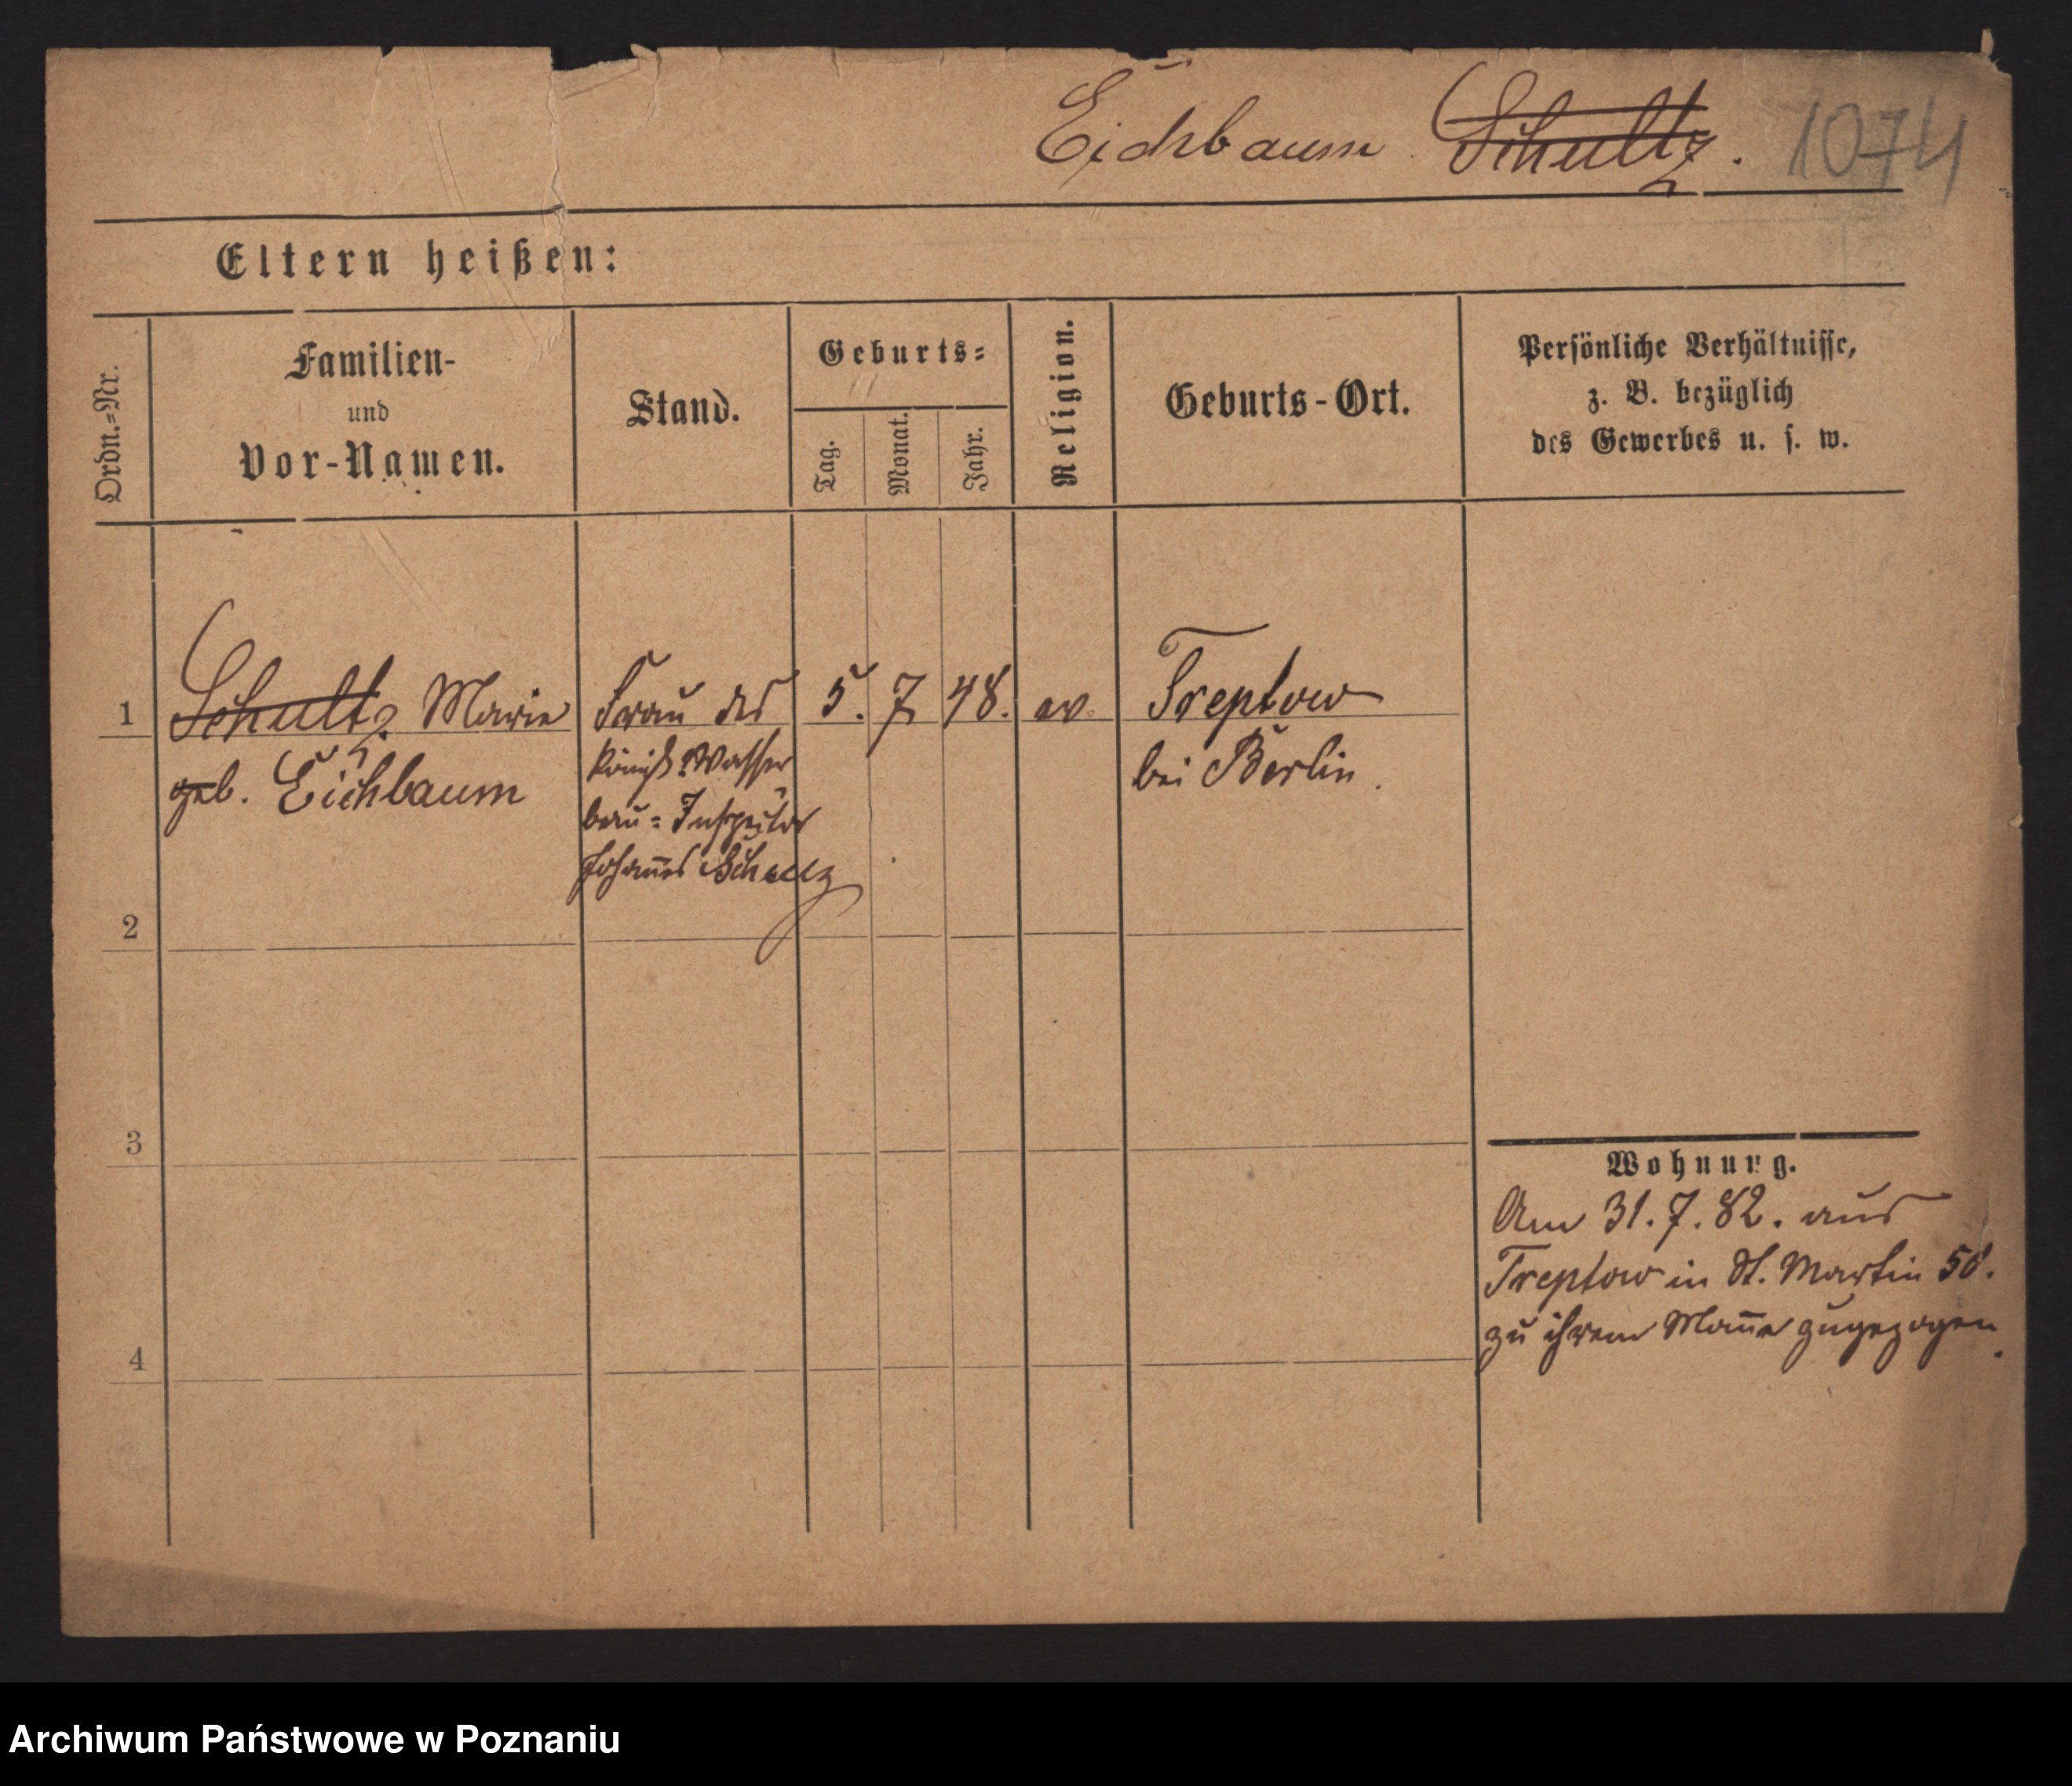 Eichbaum Schultz. 1074
Eltern heißen:
Ordn.-Nr.
Familien-
und
Vor-Namen.
Stand.
Geburts-
Tag.
Monat.
Jahr.
Religion.
Geburts-Ort.
Persönliche Verhältnisse,
z. B. bezüglich
des Gewerbes u. s. w.
1 Schultz Marie Frau des 5. 7 48. ev. Treptow
geb. Eichbaum
königl. Wasser
bau-Inspector
Johannes Schulz
bei Berlin.
2
3
4
Wohnung.
Am 31.7.82. aus
Treptow in St. Martin 58.
zu ihrem Mañe zugezogen.
Archiwum Państwowe w Poznaniu